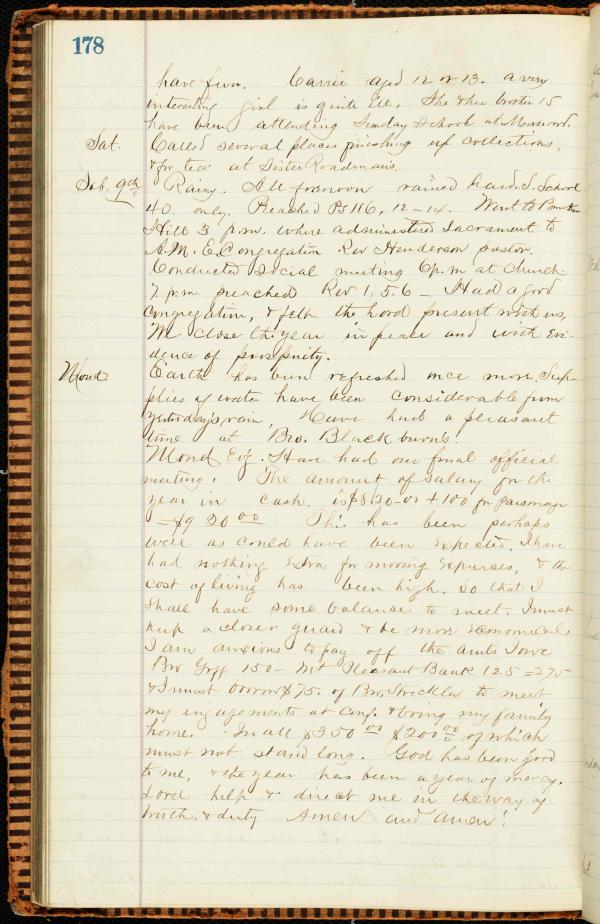 178
have fever. Carrie aged 12 or 13. a very
interesting girl is quite ill. She & her brother 15
have been attending Sunday School at
Sat. Called several places finishing up collections,
& for tea at Sister Roadman's.
Feb. 9th Rainy. All forenoon rained hard. S. School
40 only. Preached Ps 116, 12-14. Went to
Hill 3 p.m. where administered Sacrament to
A.M.E. Congregation Rev Henderson pastor.
Conducted social meeting 6 p.m at church.
7 p.m. preached Rev 1, 5.6 - Had a good
congregation, & felt the Lord present with us,
We close the year in peace and with evi-
dence of prosperity.
Mond Earth has been refreshed once more. Sup-
plies of water have been considerable from
yesterday's rain, Have had a pleasant
time at Bro. Blackburns.
Mond Evg. Have had our final official
meeting. The amount of salary for the
year in cash, is $820-00 + 100 for parsonage
= $920 00 This has been perhaps
well as could have been expected. I have
had nothing extra for moving expenses, & the
cost of living has been high. So that I
shall have some balance to meet. I must
keep a closer guard & be more economical
I am anxious to pay off the amts I owe
Bro 150- Mt Pleasant Bank 125 = 275
& I must borrow $75. of Bro. Strickler to meet
my engagements at Conf. & bring my family
home. In all $350 00 $200 00 of which
must not stand long. God has been good
to me, & the year has been a year of mercy.
Lord help & direct me in the way of
truth & duty Amen and Amen!